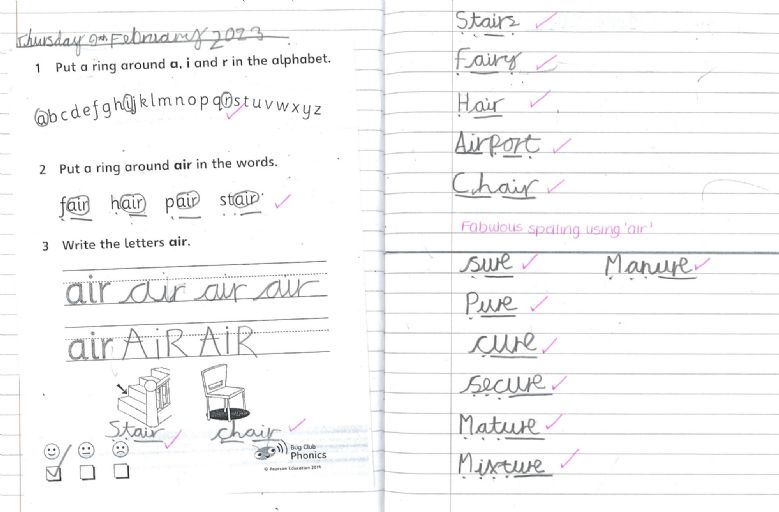 Thursday 9th February 2023
1 Put a ring around a, i and r in the alphabet.
abcdefghijklmnopqrstuvwxyz
2 Put a ring around air in the words.
fair hair pair stair
3 Write the letters air.
air air air air
air AiR AiR
Stair chair
Bug Club
Phonics
© Pearson Education 2011
Stairs
Fairy
Hair
Airport
Chair
Fabulous spelling using 'air'
sure Manure
Pure
cure
secure
Mature
Mixture